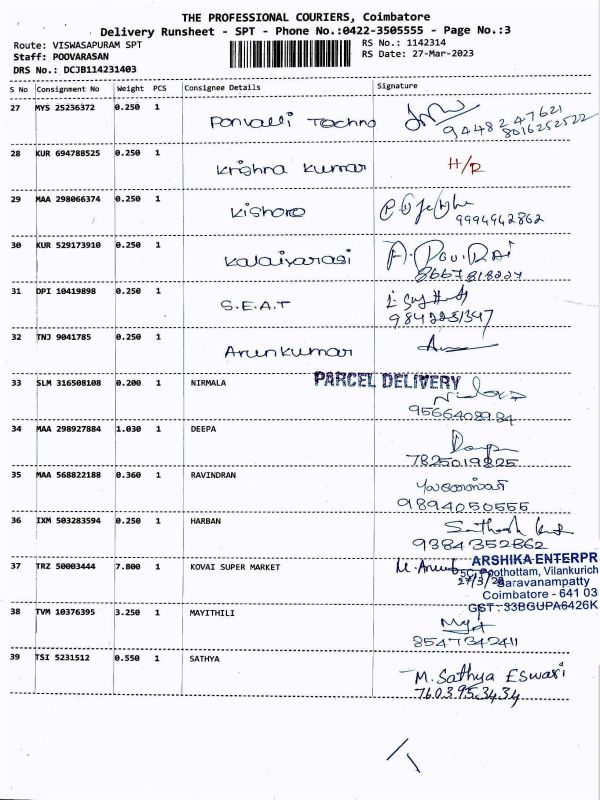 THE PROFESSIONAL COURIERS, Coimbatore
Delivery Runsheet - SPT - Phone No.:0422-3505555 - Page No.:3
Route: VISWASAPURAM SPT
RS No.: 1142314
Staff: POOVARASAN
RS Date: 27-Mar-2023
DRS No.: DCJB114231403
S No Consignment No Weight PCS Consignee Details Signature
27 MYS 25236372 0.250 1 Ponvalli Techno
94482 47621
8016252522
28 KUR 694788525 0.250 1 Krishna Kumar H/R
29 MAA 298066374 0.250 1 Kishore
9994942862
30 KUR 529173910 0.250 1 Kalaivarasi
31 DPI 10419898 0.250 1 S.E.A.T
9842251347
32 TNJ 9041785 0.250 1 Arunkumar
PARCEL DELIVERY
33 SLM 316508108 0.200 1 NIRMALA
9566408984
34 MAA 298927884 1.030 1 DEEPA
7825019825
35 MAA 568822188 0.360 1 RAVINDRAN
9894050555
36 IXM 503283594 0.250 1 HARBAN
9384352862
37 TRZ 50003444 7.800 1 KOVAI SUPER MARKET
ARSHIKA ENTERPR
Poothottam, Vilankurich
27/3/23 Saravanampatty
Coimbatore - 641 03
GST : 33BGUPA6426K
38 TVM 10376395 3.250 1 MAYITHILI
8547342411
39 TSI 5231512 0.550 1 SATHYA
M. Sathya Eswari
7603953434